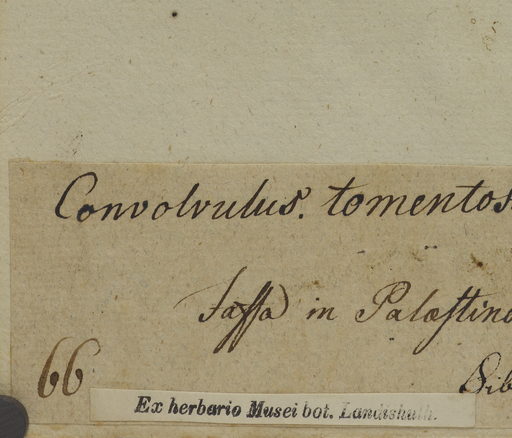 Convolvulus. tomentos
Jaffa in Palæstina
Sib
66
Ex herbario Musei bot. Landishuth.